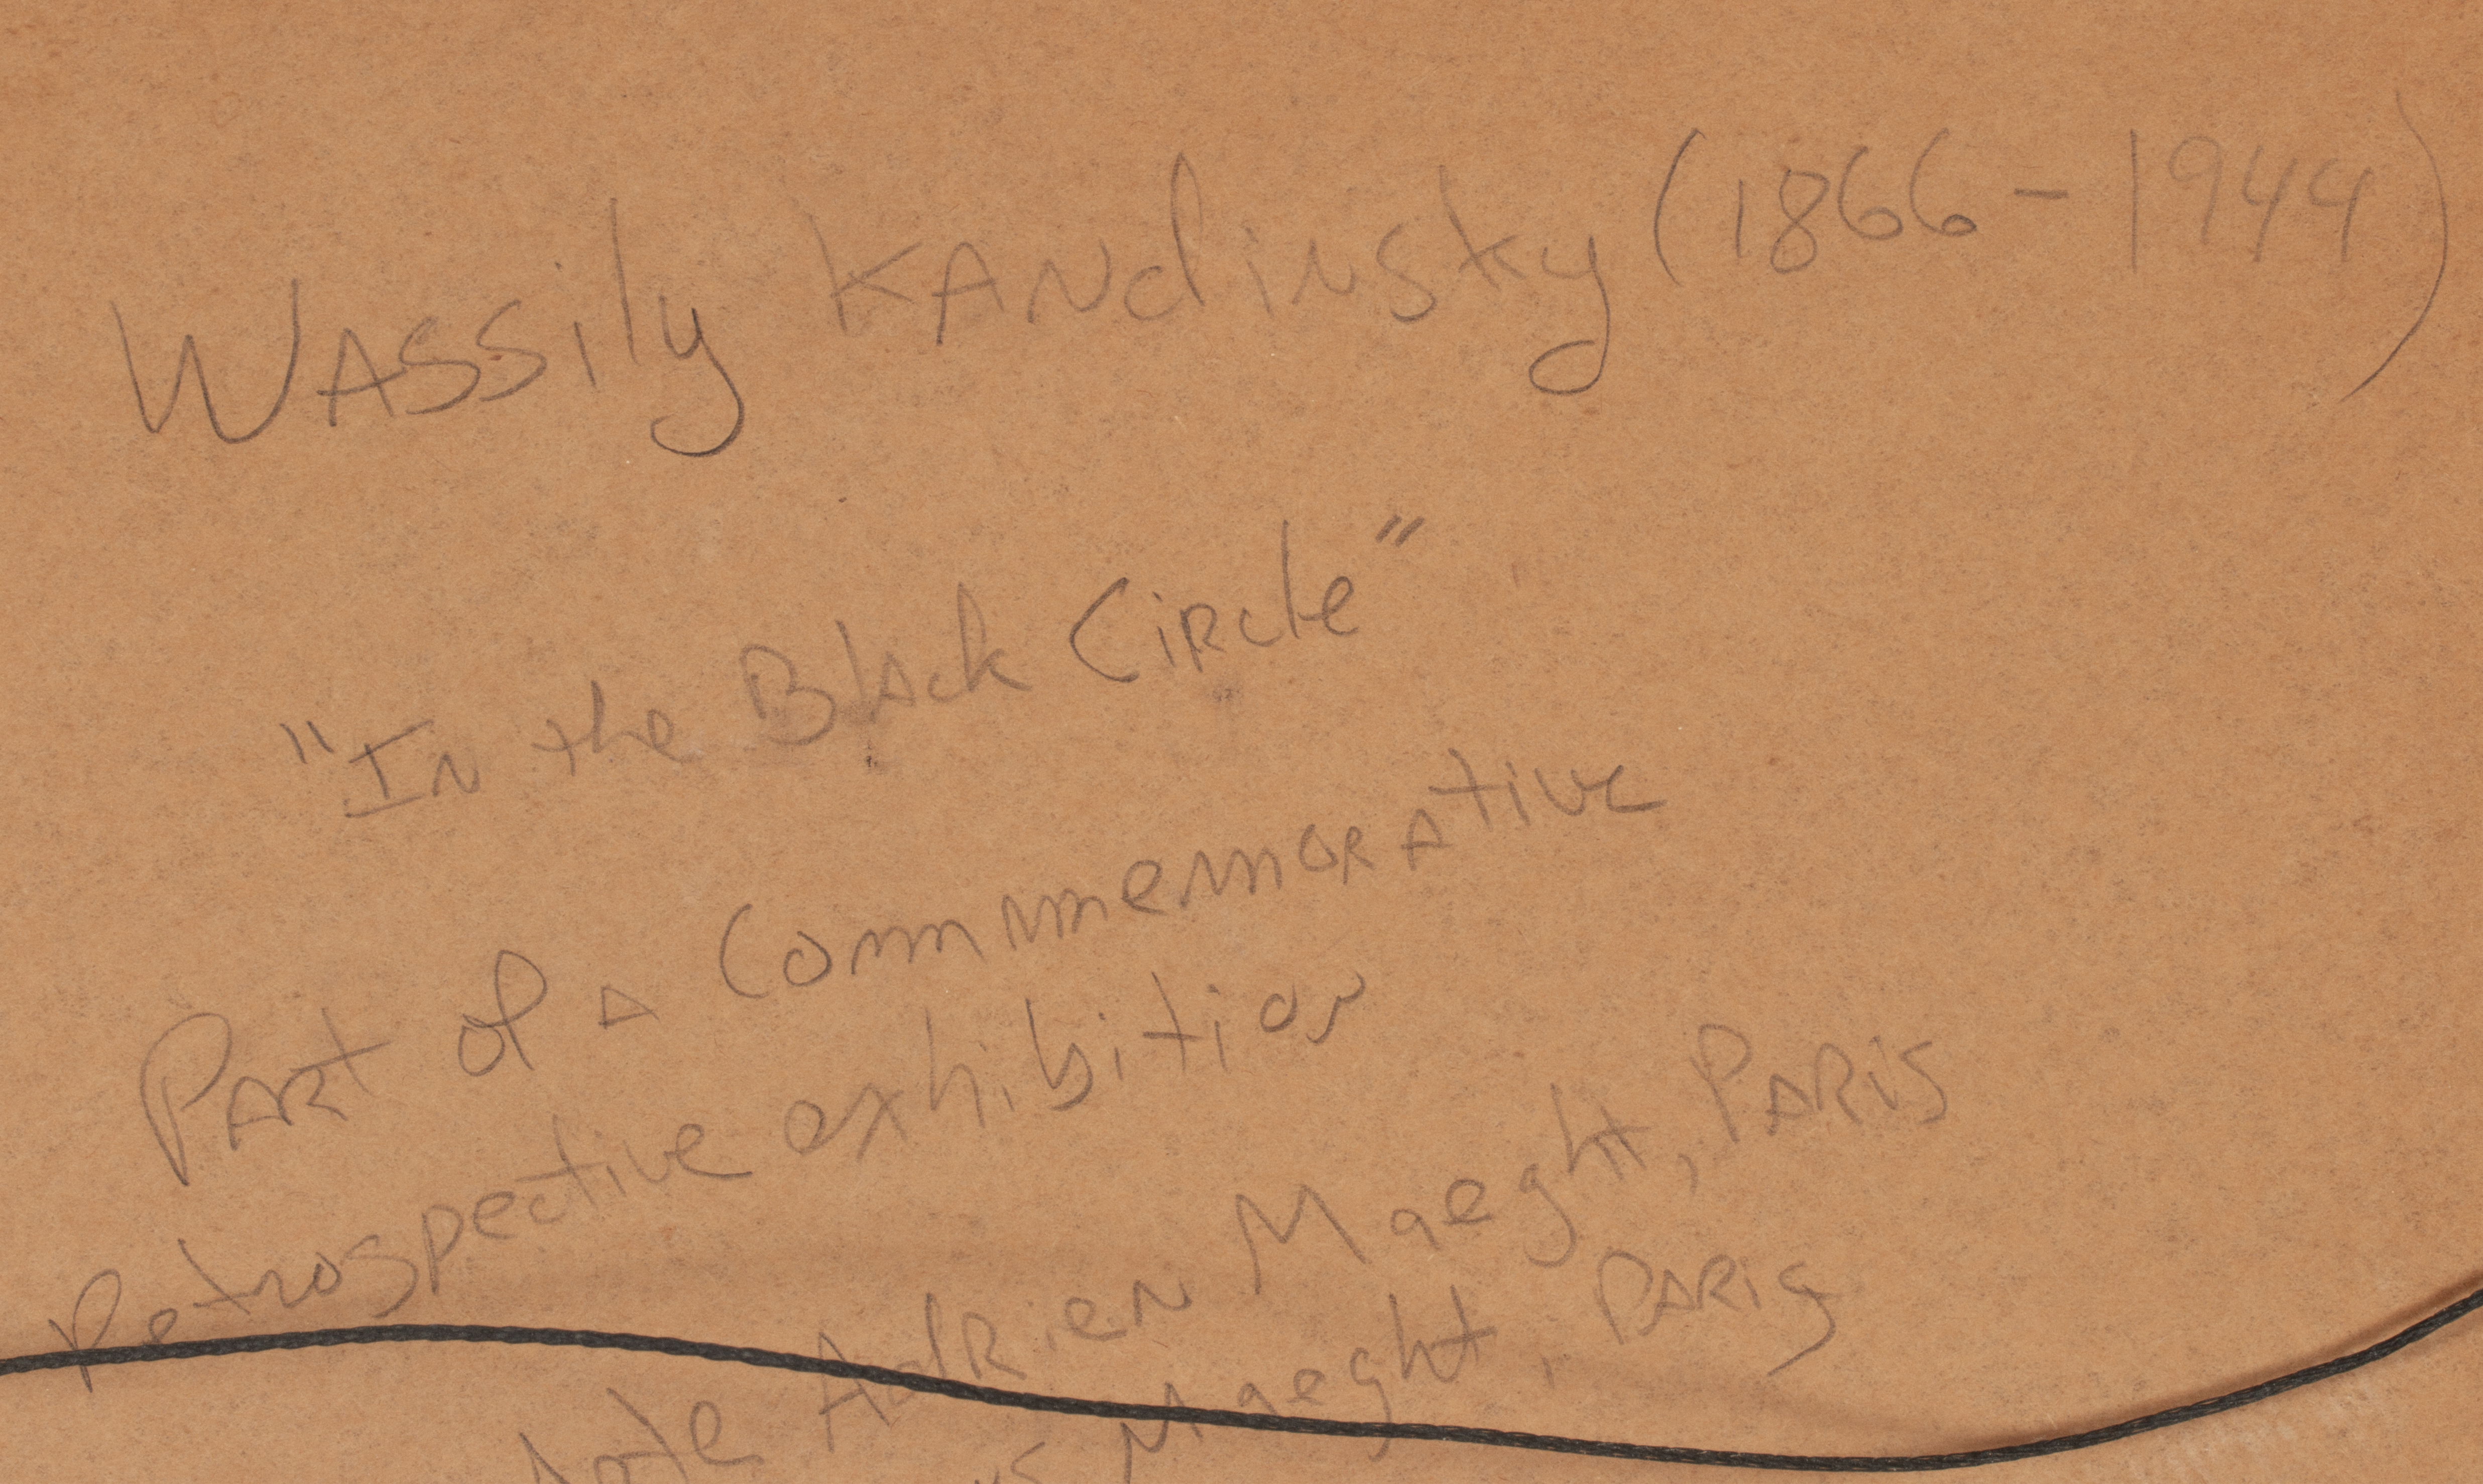 Wassily Kandinsky (1866-1944)
"In the Black Circle"
Part of a Commemorative
Retrospective exhibition
Adrien Maeght, Paris
Maeght, Paris